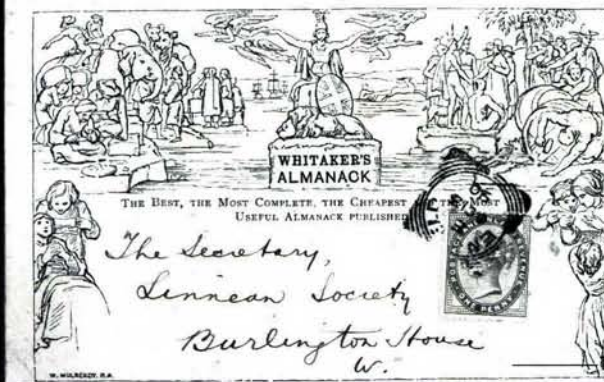 WHITAKER'S
ALMANACK
THE BEST, THE MOST COMPLETE, THE CHEAPEST MOST
USEFUL ALMANACK PUBLISHED
The Secretary,
Linnean Society
Burlington House
W.
POSTAGE AND REVENUE
ONE PENNY
W. MULREADY, R.A.